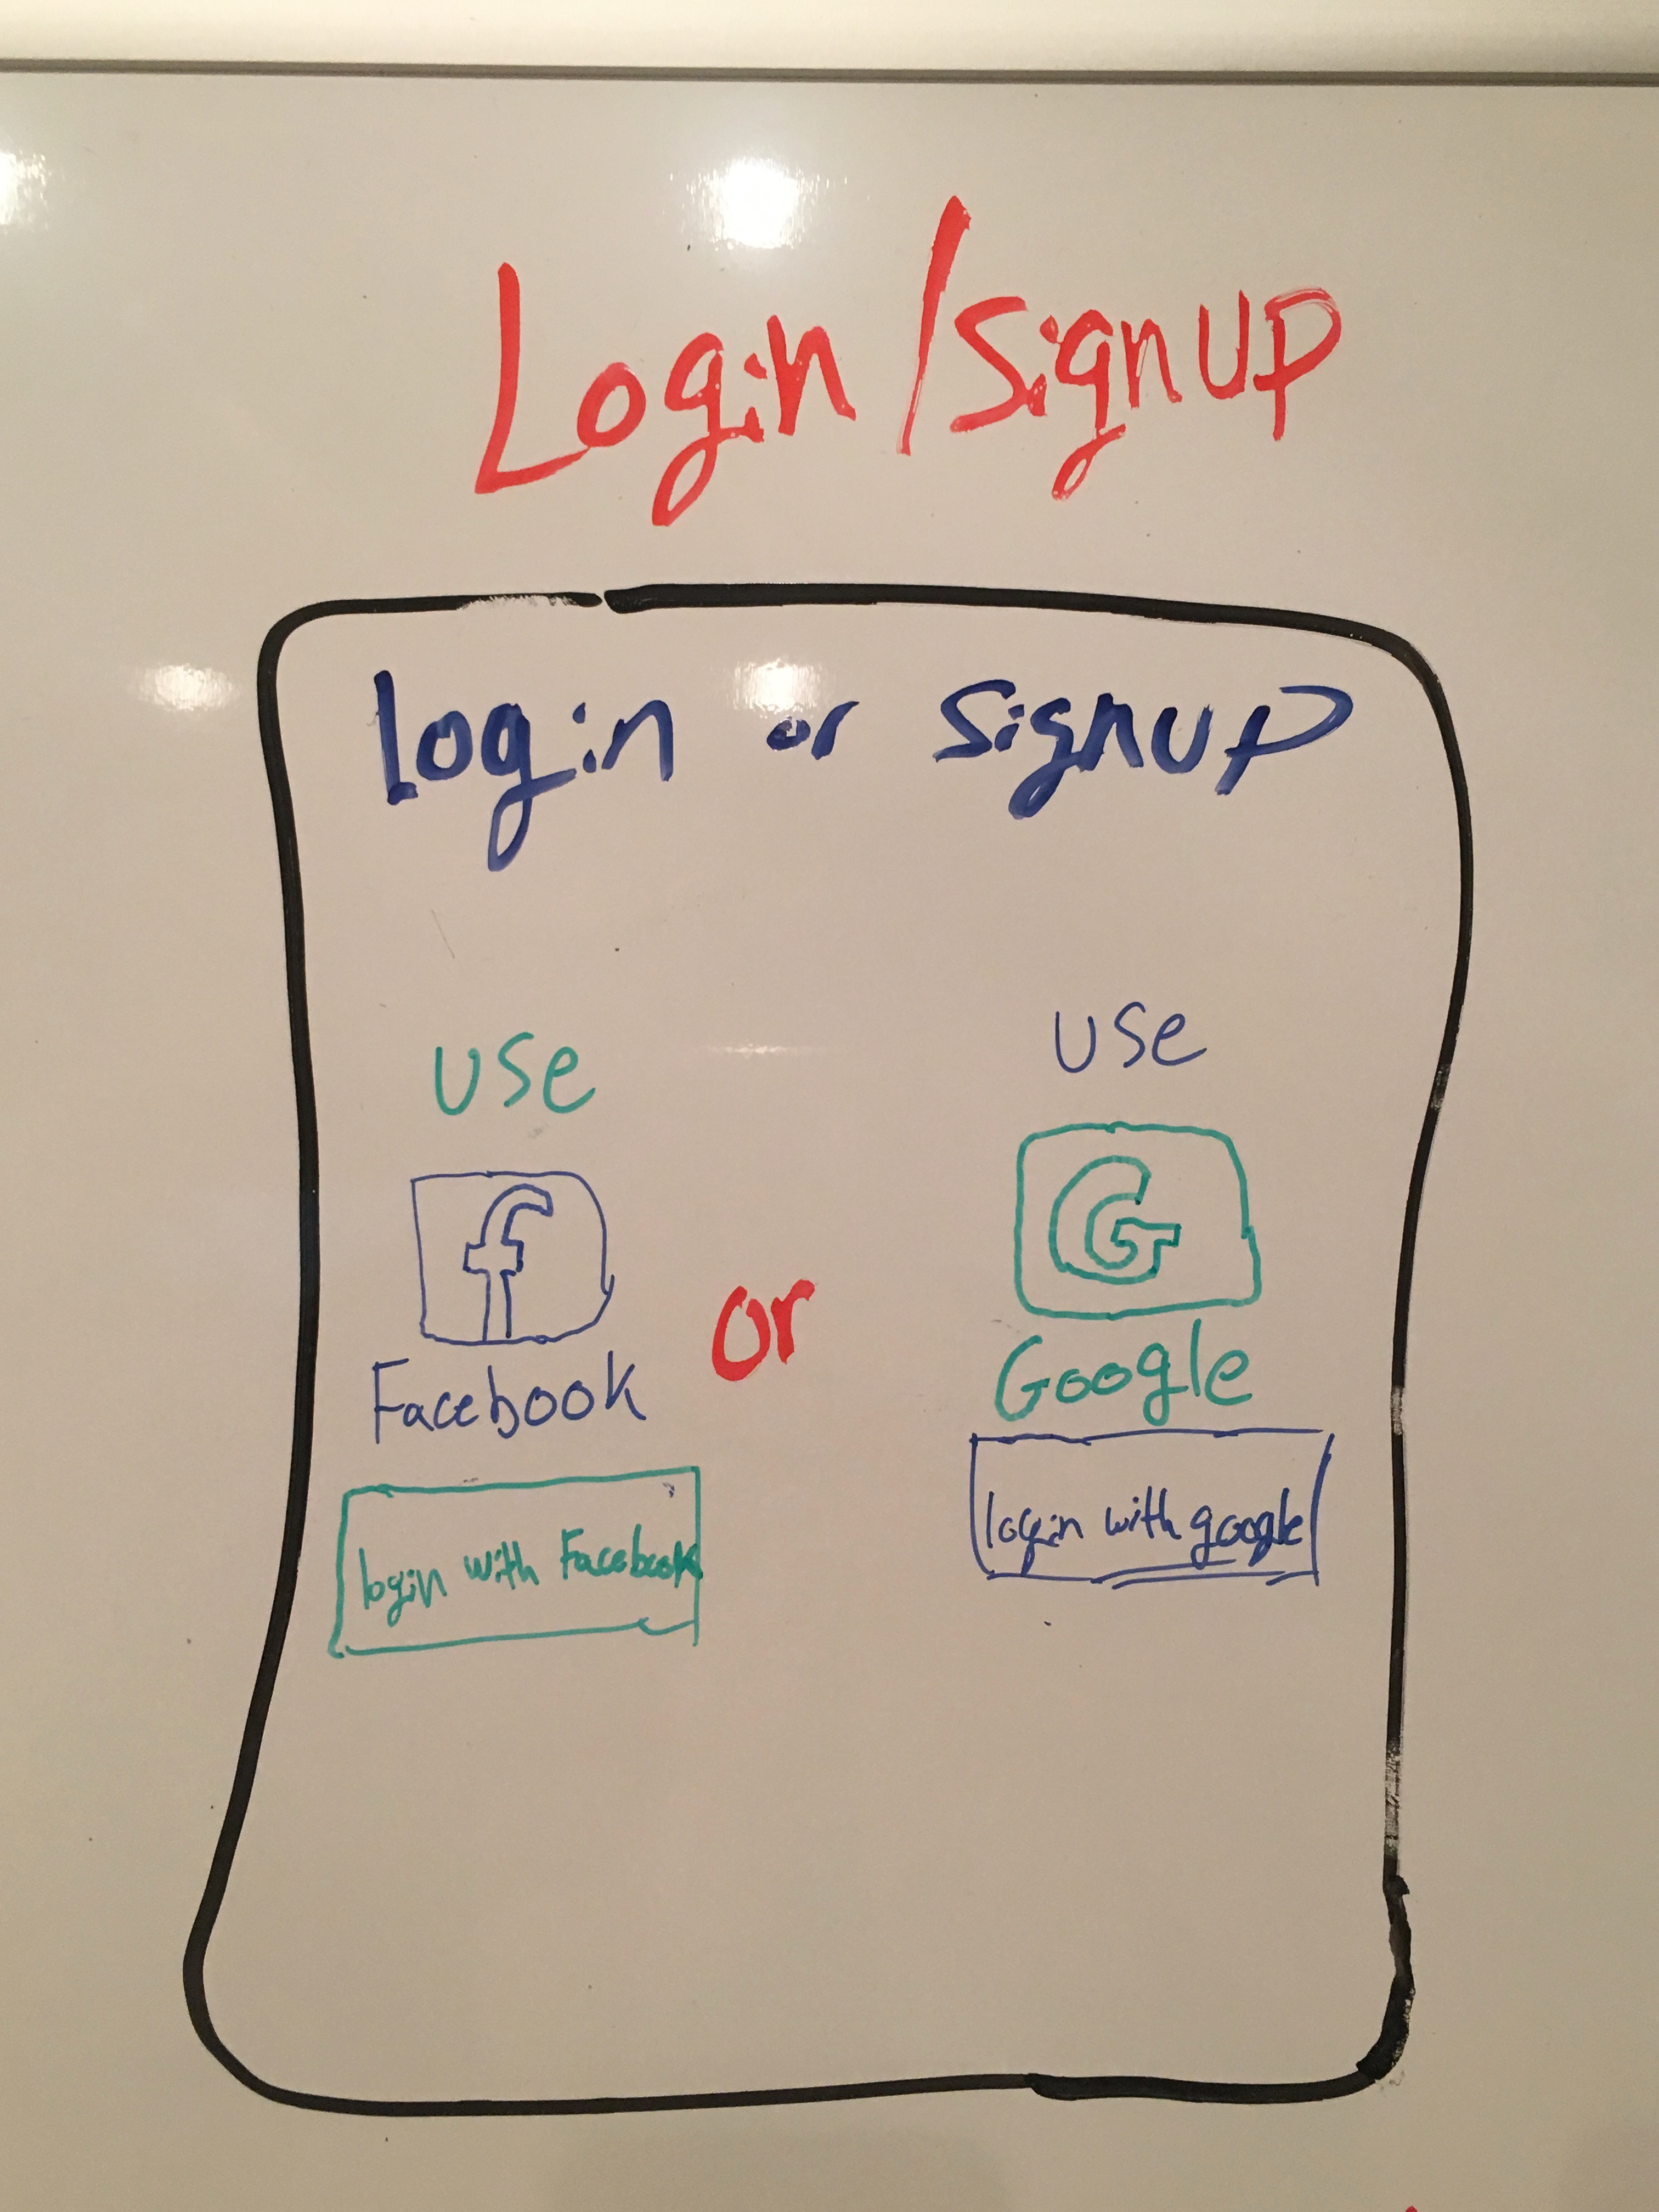 Login/signup
login or signup
use
f
Facebook
login with Facebook
or
use
G
Google
login with google